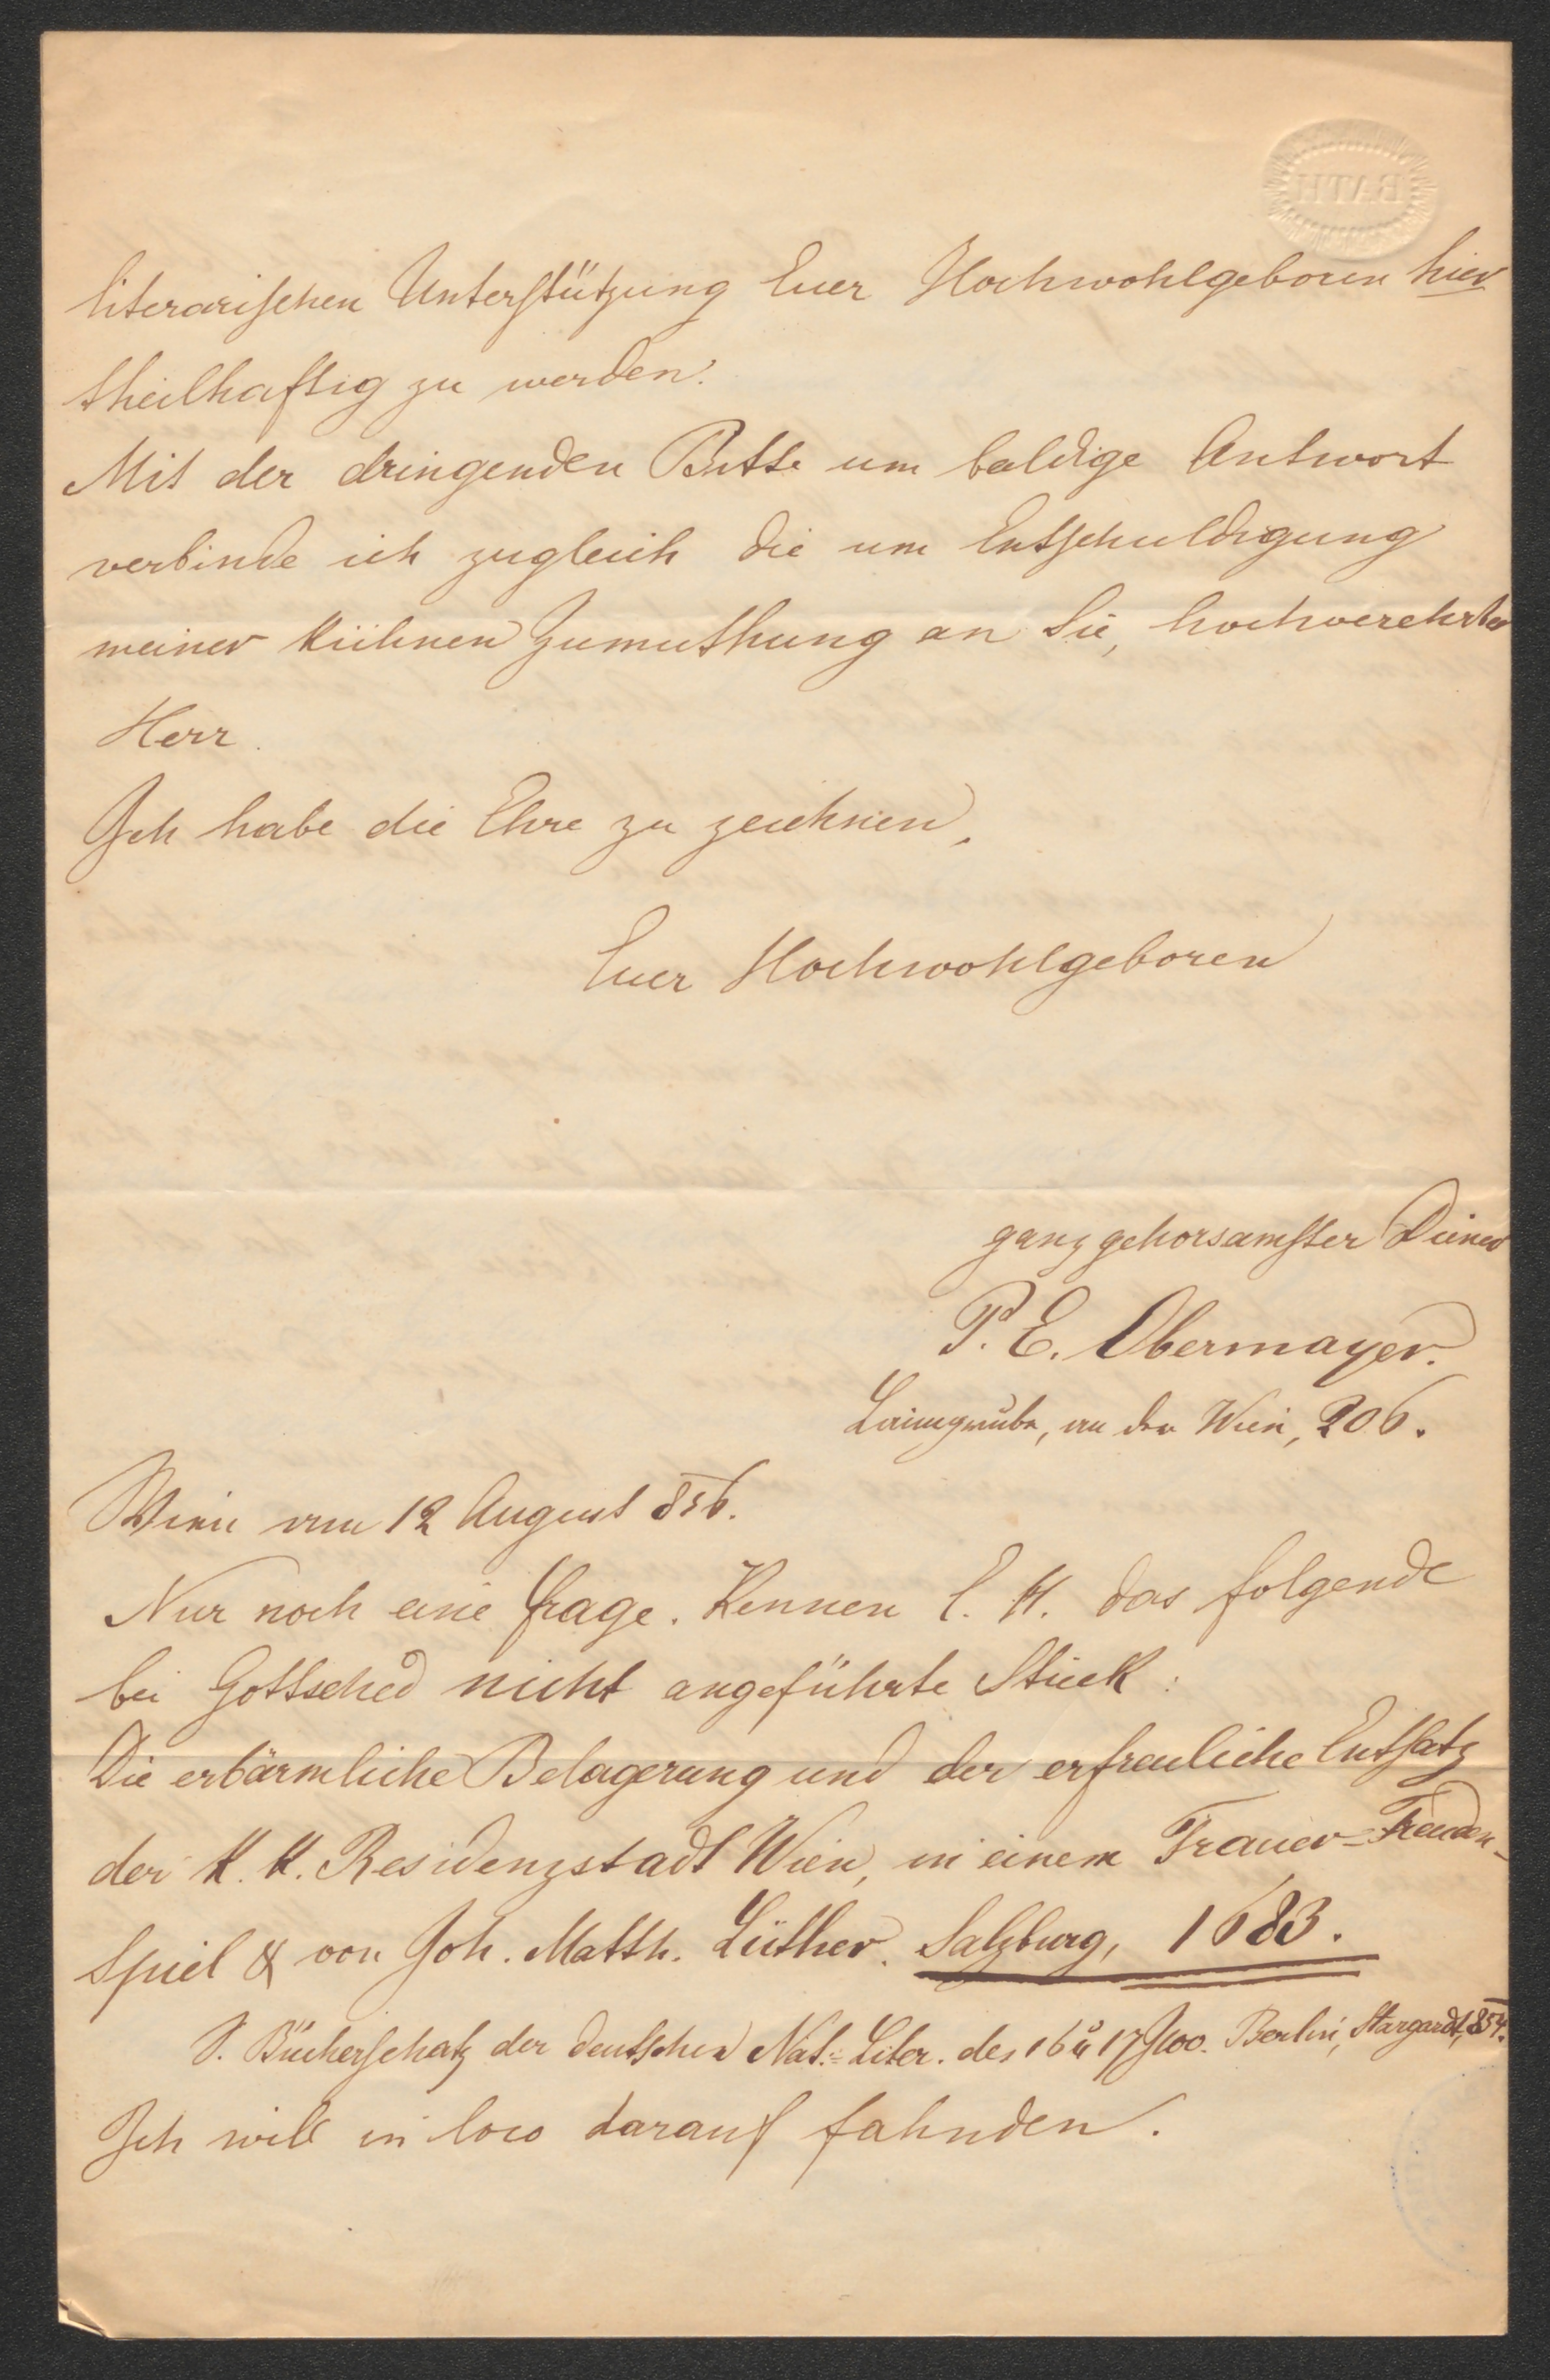 BATH
literarischen Unterstützung Euer Hochwohlgeboren hier
theilhaftig zu werden.
Mit der dringenden Bitte um baldige Antwort
verbinde ich zugleich die um Entschuldigung
meiner kühnen Zumuthung an Sie, hochverehrter
Herr.
Ich habe die Ehre zu zeichnen,
Euer Hochwohlgeboren
ganz gehorsamster Diener
P. E. Obermayer.
Laimgrube, an der Wien, 206.
Wien am 12 August 856.
Nur noch eine Frage. Kennen E. H. das folgende
bei Gottsched nicht angeführte Stück:
Die erbärmliche Belagerung und der erfreuliche Entsatz
der k. k. Residenzstadt Wien, in einem Trauer-Freuden-
spiel & von Joh. Matth. Lüther. Salzburg, 1683.
S. Bücherschatz der deutschen Nat.-Liter. des 16 u 17 J100. Berlin, Stargardt, 854.
Ich will in loco darauf fahnden.